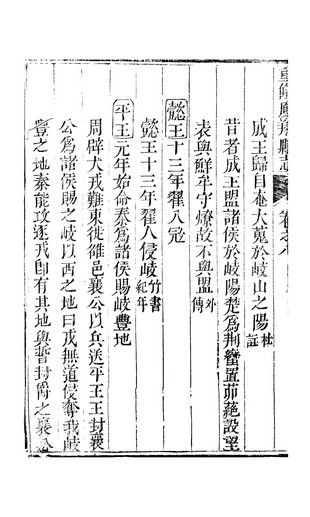 重修鳳翔縣志 卷之八
成王歸自奄大蒐於岐山之陽杜註
昔者成王盟諸侯於岐陽楚爲荆蠻置茆蕝設望
表與鮮牟守燎故不與盟外傳
懿王十三年翟人寇
懿王十三年翟人侵岐竹書紀年
平王元年始命秦爲諸侯賜岐豐地
周辟犬戎難東徙雒邑襄公以兵送平王王封襄
公爲諸侯賜之岐以西之地曰戎無道侵奪我岐
豐之地秦能攻逐戎即有其地與誓封爵之襄公